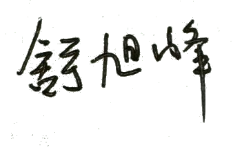 舒旭峰